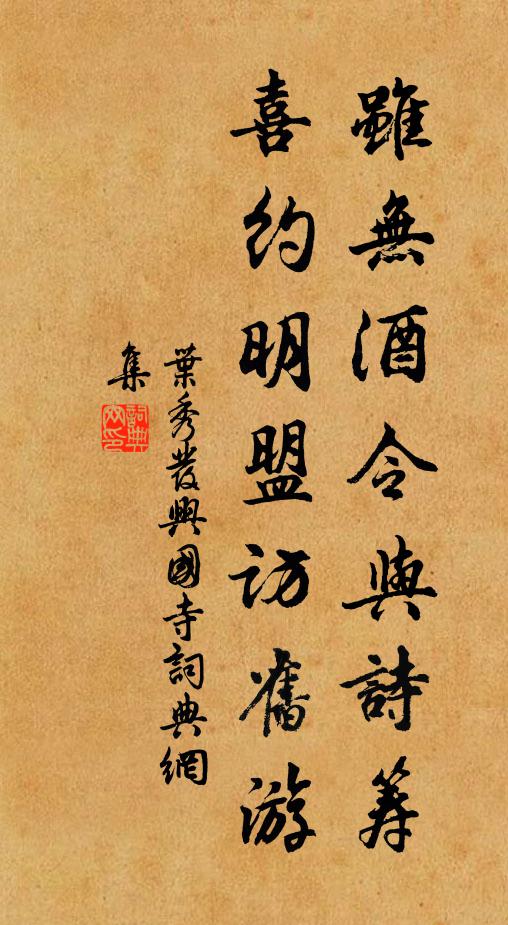 雖無酒令與詩籌
喜約明盟訪舊游
葉秀發興國寺詞典網
集
詞典網印